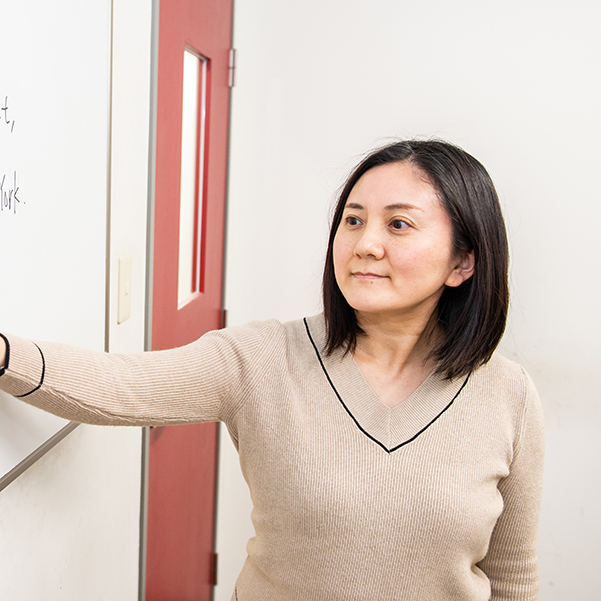 t,
York.